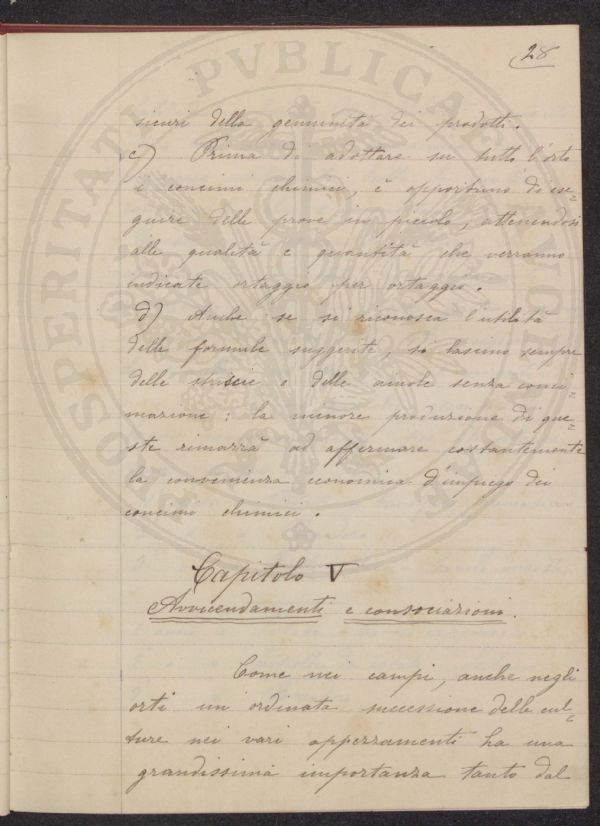 28
sicuri della genuinità dei prodotti.
c) Prima di adottare su tutto l'orto
i concimi chimici, è opportuno di ese=
guire delle prove in piccolo, attenendosi
alle qualità e quantità che verranno
indicate ortaggio per ortaggio.
d) Anche se si riconosca l'utilità
delle formule suggerite, si lascino sempre
delle striscie o delle aiuole senza conci=
mazione: la minore produzione di que=
ste rimarrà ad affermare costantemente
la convenienza economica d'impiego dei
concimi chimici.
Capitolo V
Avvicendamenti e consociazioni.
Come nei campi, anche negli
orti un'ordinata successione delle cul=
ture nei vari appezzamenti ha una
grandissima importanza tanto dal